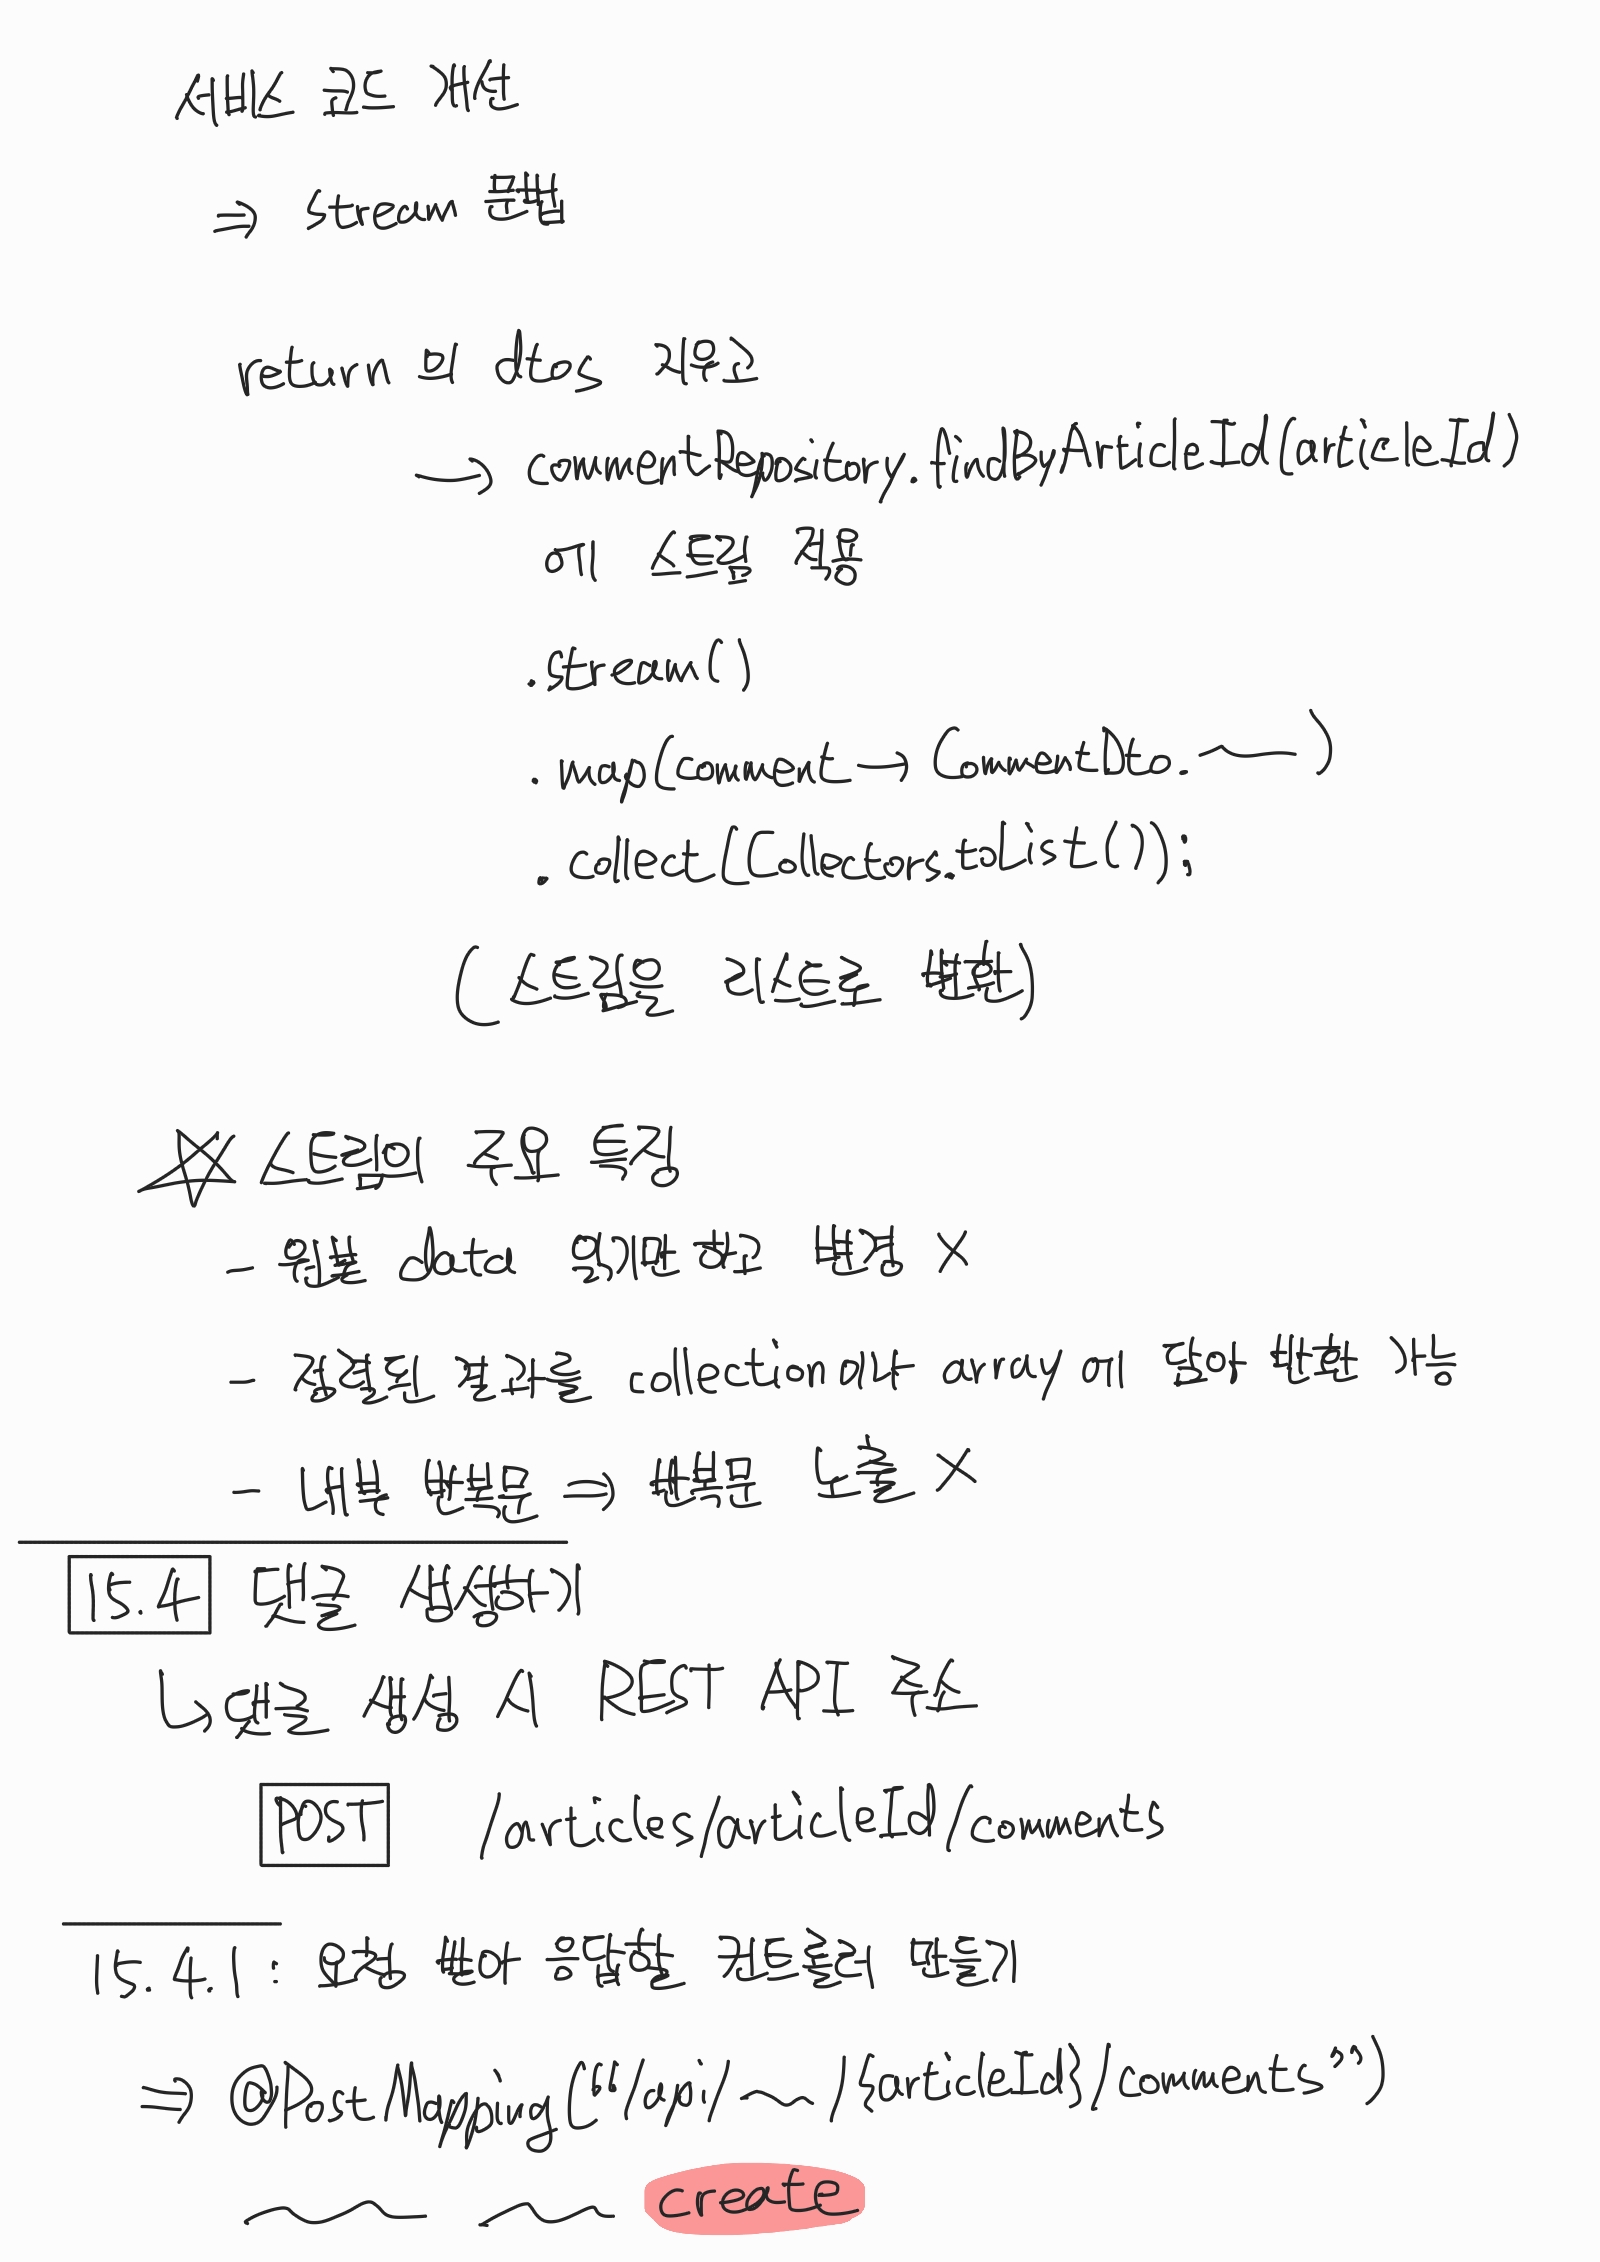 서비스 코드 개선
⇒ stream 문법
return 의 dtos 지우고
→ commentRepository.findByArticleId(articleId)
에 스트림 적용
.stream()
.map(comment → CommentDto.~)
.collect(Collectors.toList());
(스트림을 리스트로 변환)
☆ 스트림의 주요 특징
- 원본 data 읽기만 하고 변경 X
- 정렬된 결과를 collection이나 array에 담아 반환 가능
- 내부 반복문 ⇒ 반복문 노출 X
15.4 댓글 생성하기
↳ 댓글 생성 시 REST API 주소
POST /articles/articleId/comments
15.4.1 : 요청 받아 응답할 컨트롤러 만들기
⇒ @PostMapping("/api/~/{articleId}/comments")
~ ~ create